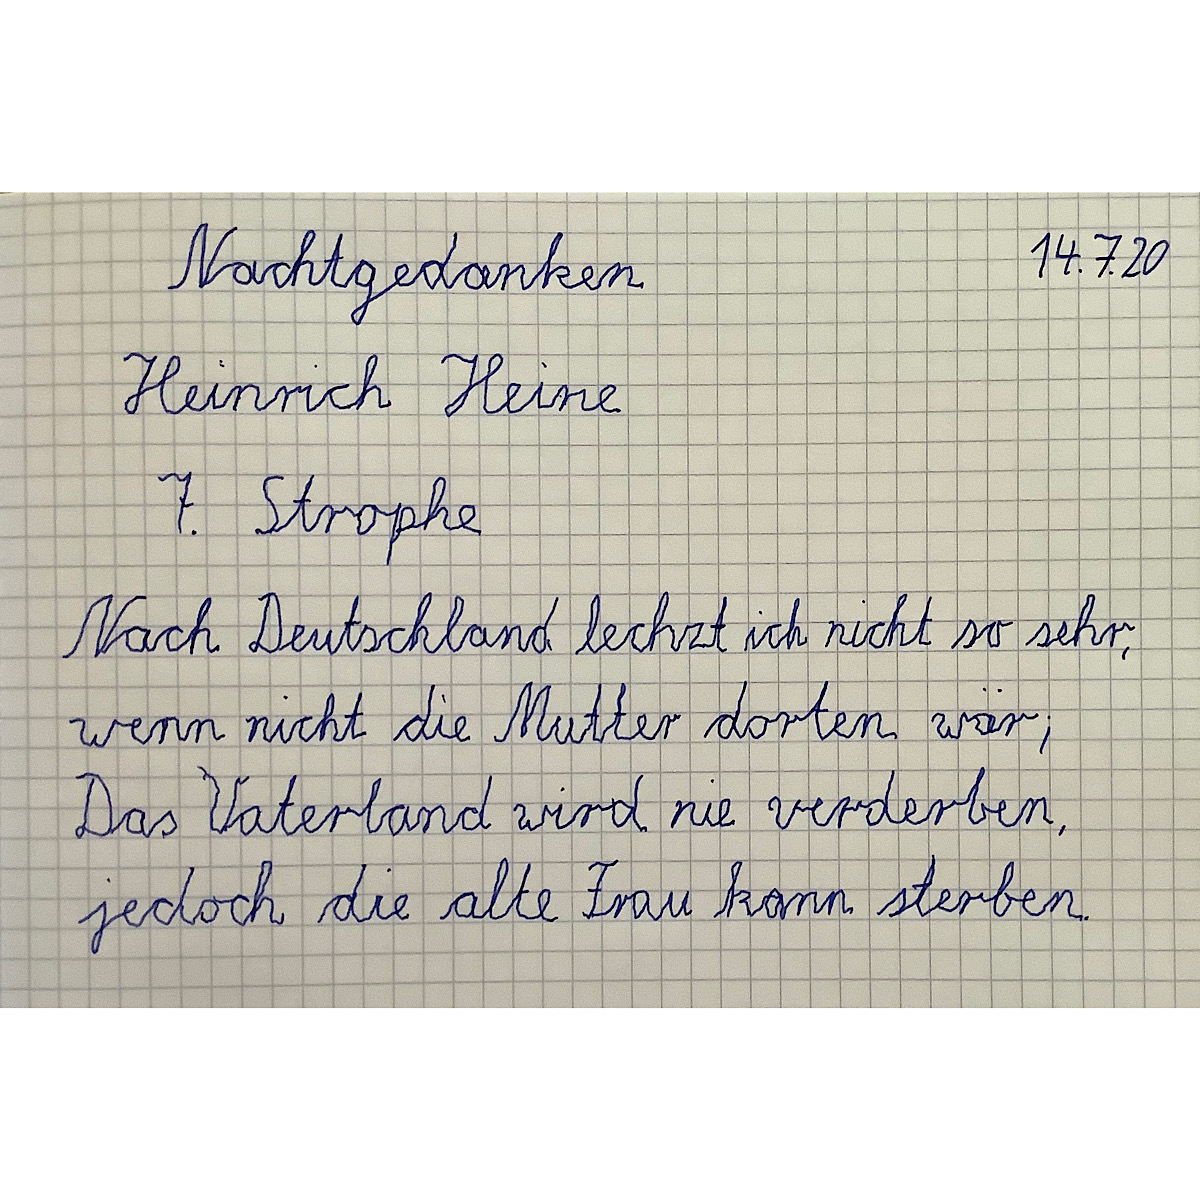 Nachtgedanken 14.7.20
Heinrich Heine
7. Strophe
Nach Deutschland lechzt ich nicht so sehr,
wenn nicht die Mutter dorten wär;
Das Vaterland wird nie verderben,
jedoch die alte Frau kann sterben.